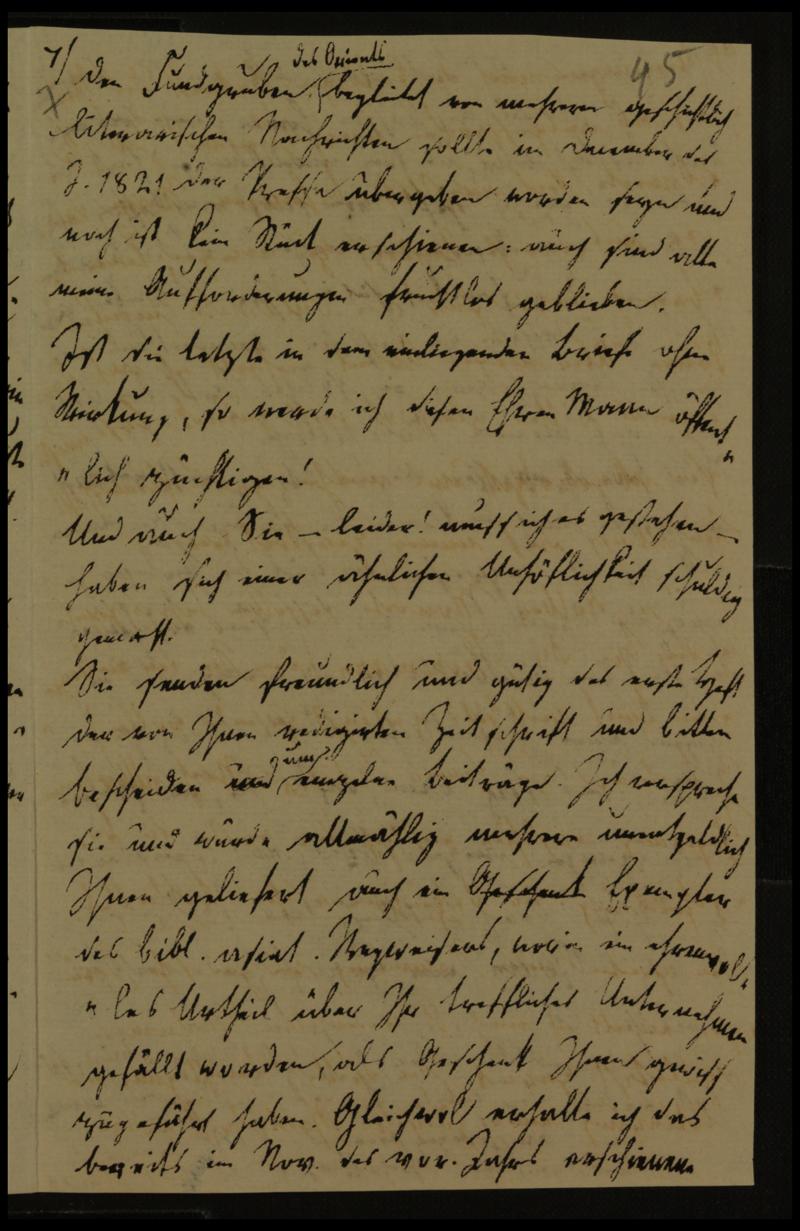 7/ den Fundgruben des Orients (begleitet von mehreren geschichtlich
45
literarischen Nachrichten sollte im December des
J. 1821 der Presse übergeben worden seyn und
noch ist kein Stück erschienen: auch sind alle
meine Aufforderungen fruchtlos geblieben.
Ist die letzte in dem einliegenden Briefe ohne
Wirkung, so werde ich diesen Ehren Mann öffent„
„lich züchtigen!
Und auch Sie – leider! muss ich es gestehen –
haben sich einer ähnlichen Unhöflichkeit schuldig
gemacht.
Sie senden freundlich und gütig das erste Heft
der von Ihnen redigirten Zeitschrift und bitten
bescheiden um einzelne Beiträge. Ich verspreche
sie und wurde allmählig mehrere unentgeldlich
Ihnen geliefert auch ein Geschenk Exemplar
des bibl. asiat. Wegweisers, worin ein ehrenvol„
„les Urtheil über Ihr treffliches Unternehmen
gefällt worden, als Geschenk Ihnen gewiss
zugeführt haben. Gleichwol erhalte ich das
bereits im Nov. des vor. Jahrs erschienene